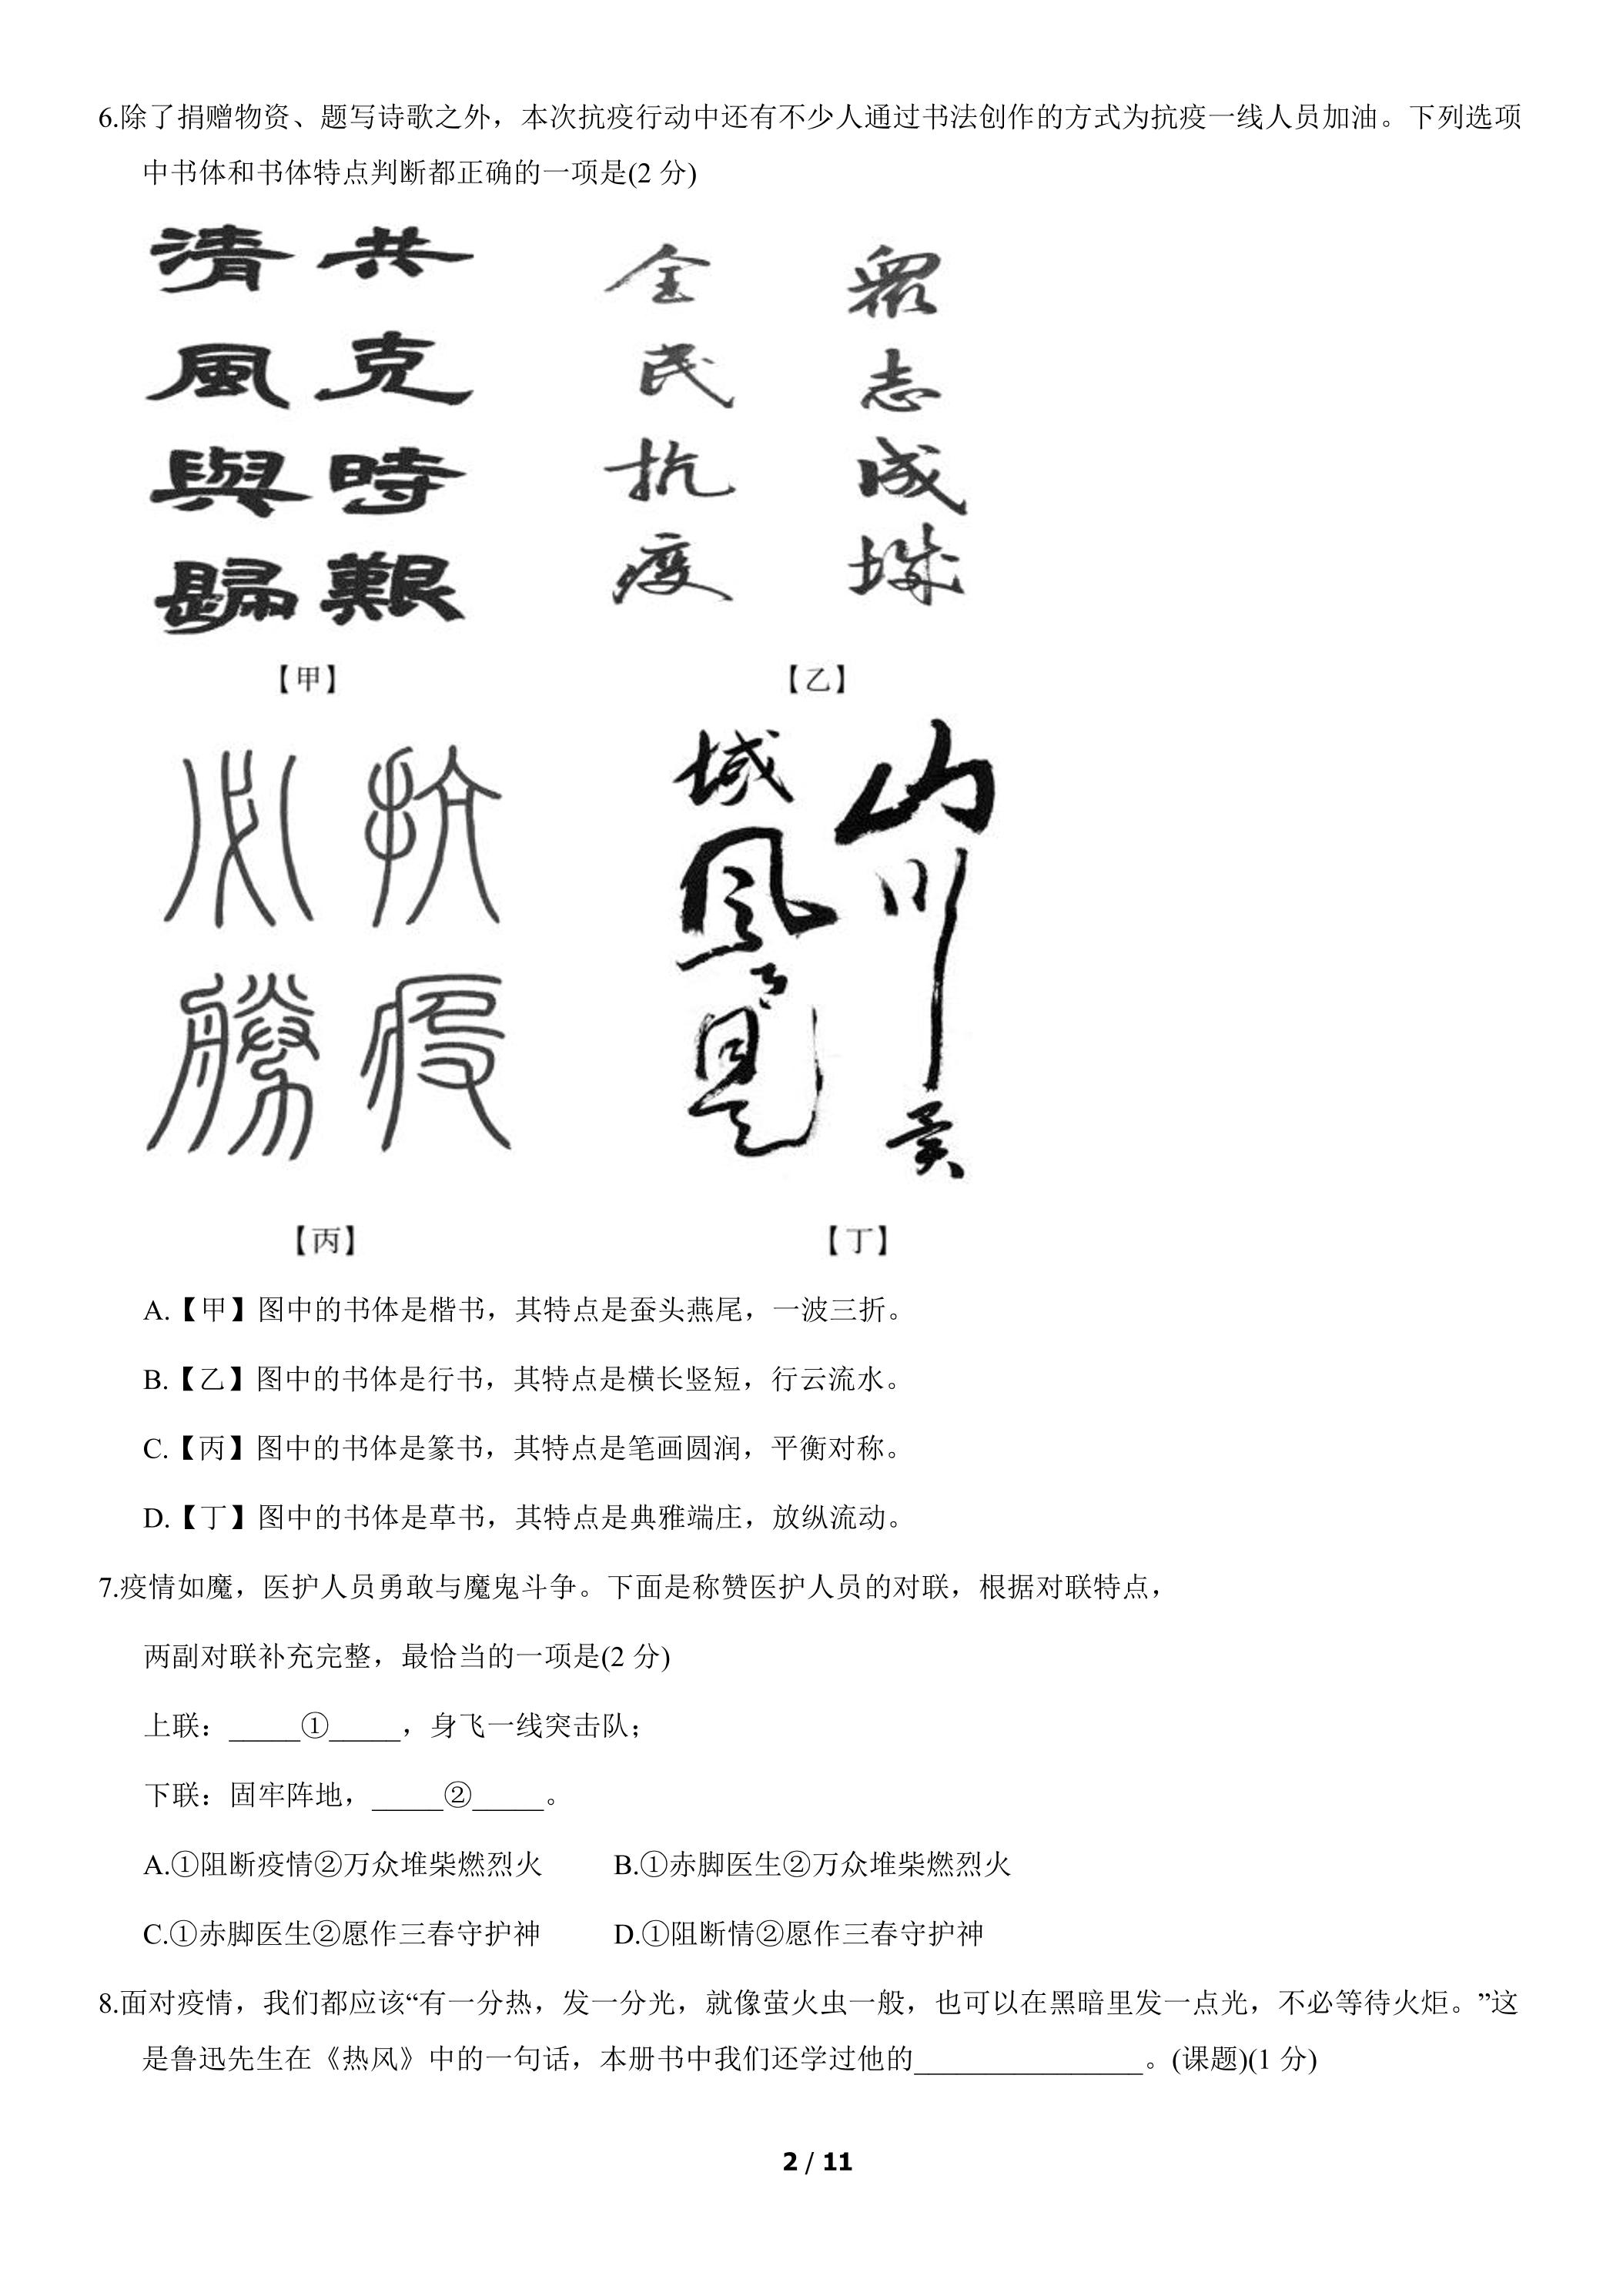 6.除了捐赠物资、题写诗歌之外，本次抗疫行动中还有不少人通过书法创作的方式为抗疫一线人员加油。下列选项
中书体和书体特点判断都正确的一项是(2 分)
共克時艱
清風與歸
【甲】
眾志成城
全民抗疫
【乙】
抗疫
必勝
【丙】
山川異
域風月
【丁】
A.【甲】图中的书体是楷书，其特点是蚕头燕尾，一波三折。
B.【乙】图中的书体是行书，其特点是横长竖短，行云流水。
C.【丙】图中的书体是篆书，其特点是笔画圆润，平衡对称。
D.【丁】图中的书体是草书，其特点是典雅端庄，放纵流动。
7.疫情如魔，医护人员勇敢与魔鬼斗争。下面是称赞医护人员的对联，根据对联特点，
两副对联补充完整，最恰当的一项是(2 分)
上联：_____①_____，身飞一线突击队；
下联：固牢阵地，_____②_____。
A.①阻断疫情②万众堆柴燃烈火 B.①赤脚医生②万众堆柴燃烈火
C.①赤脚医生②愿作三春守护神 D.①阻断情②愿作三春守护神
8.面对疫情，我们都应该“有一分热，发一分光，就像萤火虫一般，也可以在黑暗里发一点光，不必等待火炬。”这
是鲁迅先生在《热风》中的一句话，本册书中我们还学过他的________________。(课题)(1 分)
2 / 11